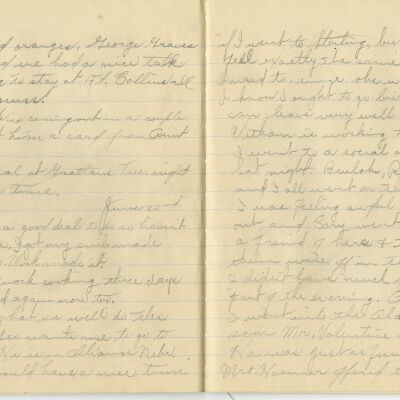 d oranges. George Graves
d we had a nice talk
g to stay at Ft. Collins all
coming out in a couple
t him a card from Aunt
al at Grattan Tree. night
time.
June 22nd
a good deal to do so haven't
I got my suit made
made it.
work working three days
d again now too.
what we will do this
wants me to go to
Nebr.
ould have a nice time
if I went to Sterling, but
feel exactly the same
used to, since she w
I know I ought to go but
can leave very well
Witham is working
I went to a social
last night Beulah, R
and I all went on the
I was feeling awful
out and Gary went
a friend of hers & I
them were off in t
I didn't have much
part of the evening.
I went into the
soon Mr. Valentine
Ka was just as fun
Mrs. offered t